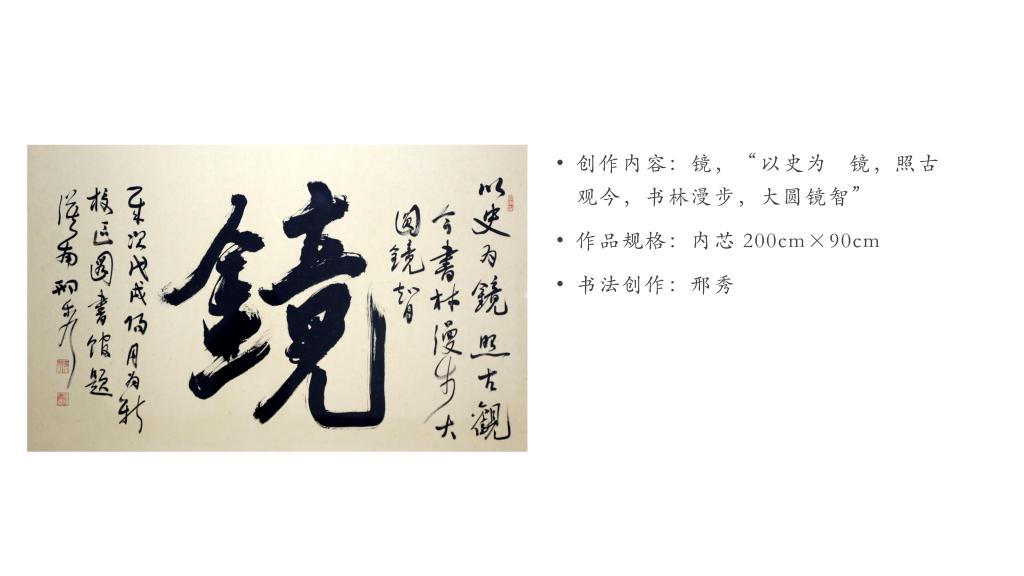 以史为鏡照古觀
今書林漫步大
圆鏡智
鏡
戊戌陽月为新
校区圖書館题
• 创作内容：镜，“以史为　镜，照古
观今，书林漫步，大圆镜智”
• 作品规格：内芯 200cm×90cm
• 书法创作：邢秀